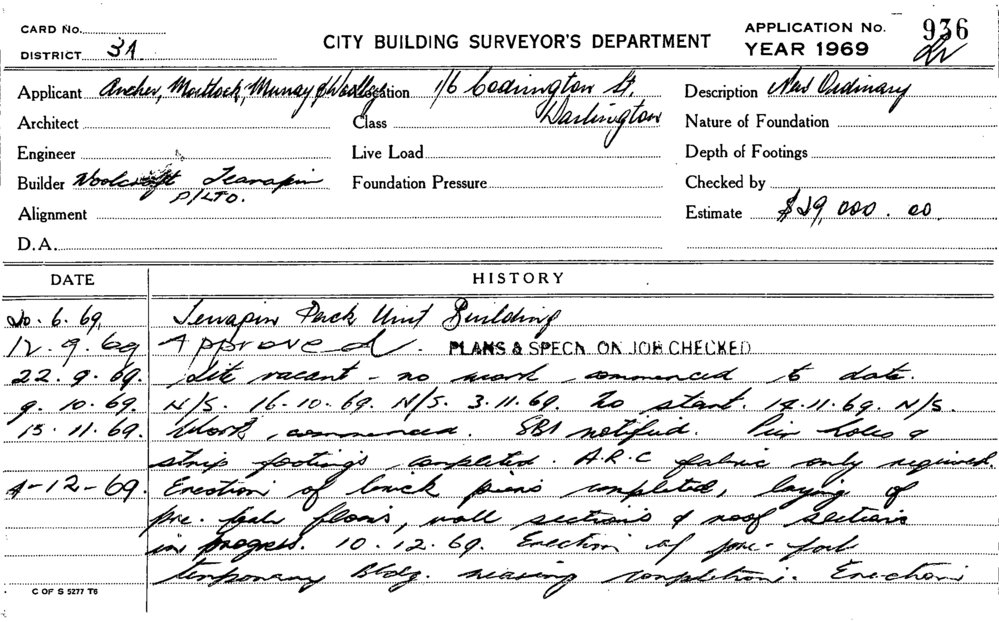 CARD No.
DISTRICT 3A
CITY BUILDING SURVEYOR'S DEPARTMENT
APPLICATION No. 936
YEAR 1969
Applicant Ancher, Mortlock, Murray & Woolley
Location 1/6 Codrington St,
Darlington
Description New Ordinary
Architect
Class
Nature of Foundation
Engineer
Live Load
Depth of Footings
Builder Woolcroft Terrapin
P/LTD.
Foundation Pressure
Checked by
Alignment
Estimate $29,000.00
D.A.
DATE HISTORY
20.6.69. Terrapin Pack Unit Building
12.9.69 Approved. PLANS & SPECN. ON JOB CHECKED
22.9.69. Site vacant - no work commenced to date.
9.10.69. N/S. 16.10.69. N/S. 3.11.69. To start. 14.11.69. N/S.
15.11.69. Work commenced. SBI notified. Pier holes &
strip footings completed. A.R.C fabric only required.
4-12-69. Erection of brick piers completed, laying of
pre-fab floors, wall sections & roof sections
in progress. 10.12.69. Erection of pre-fab
temporary Bldg. nearing completion. Erection
C OF S 5277 T6